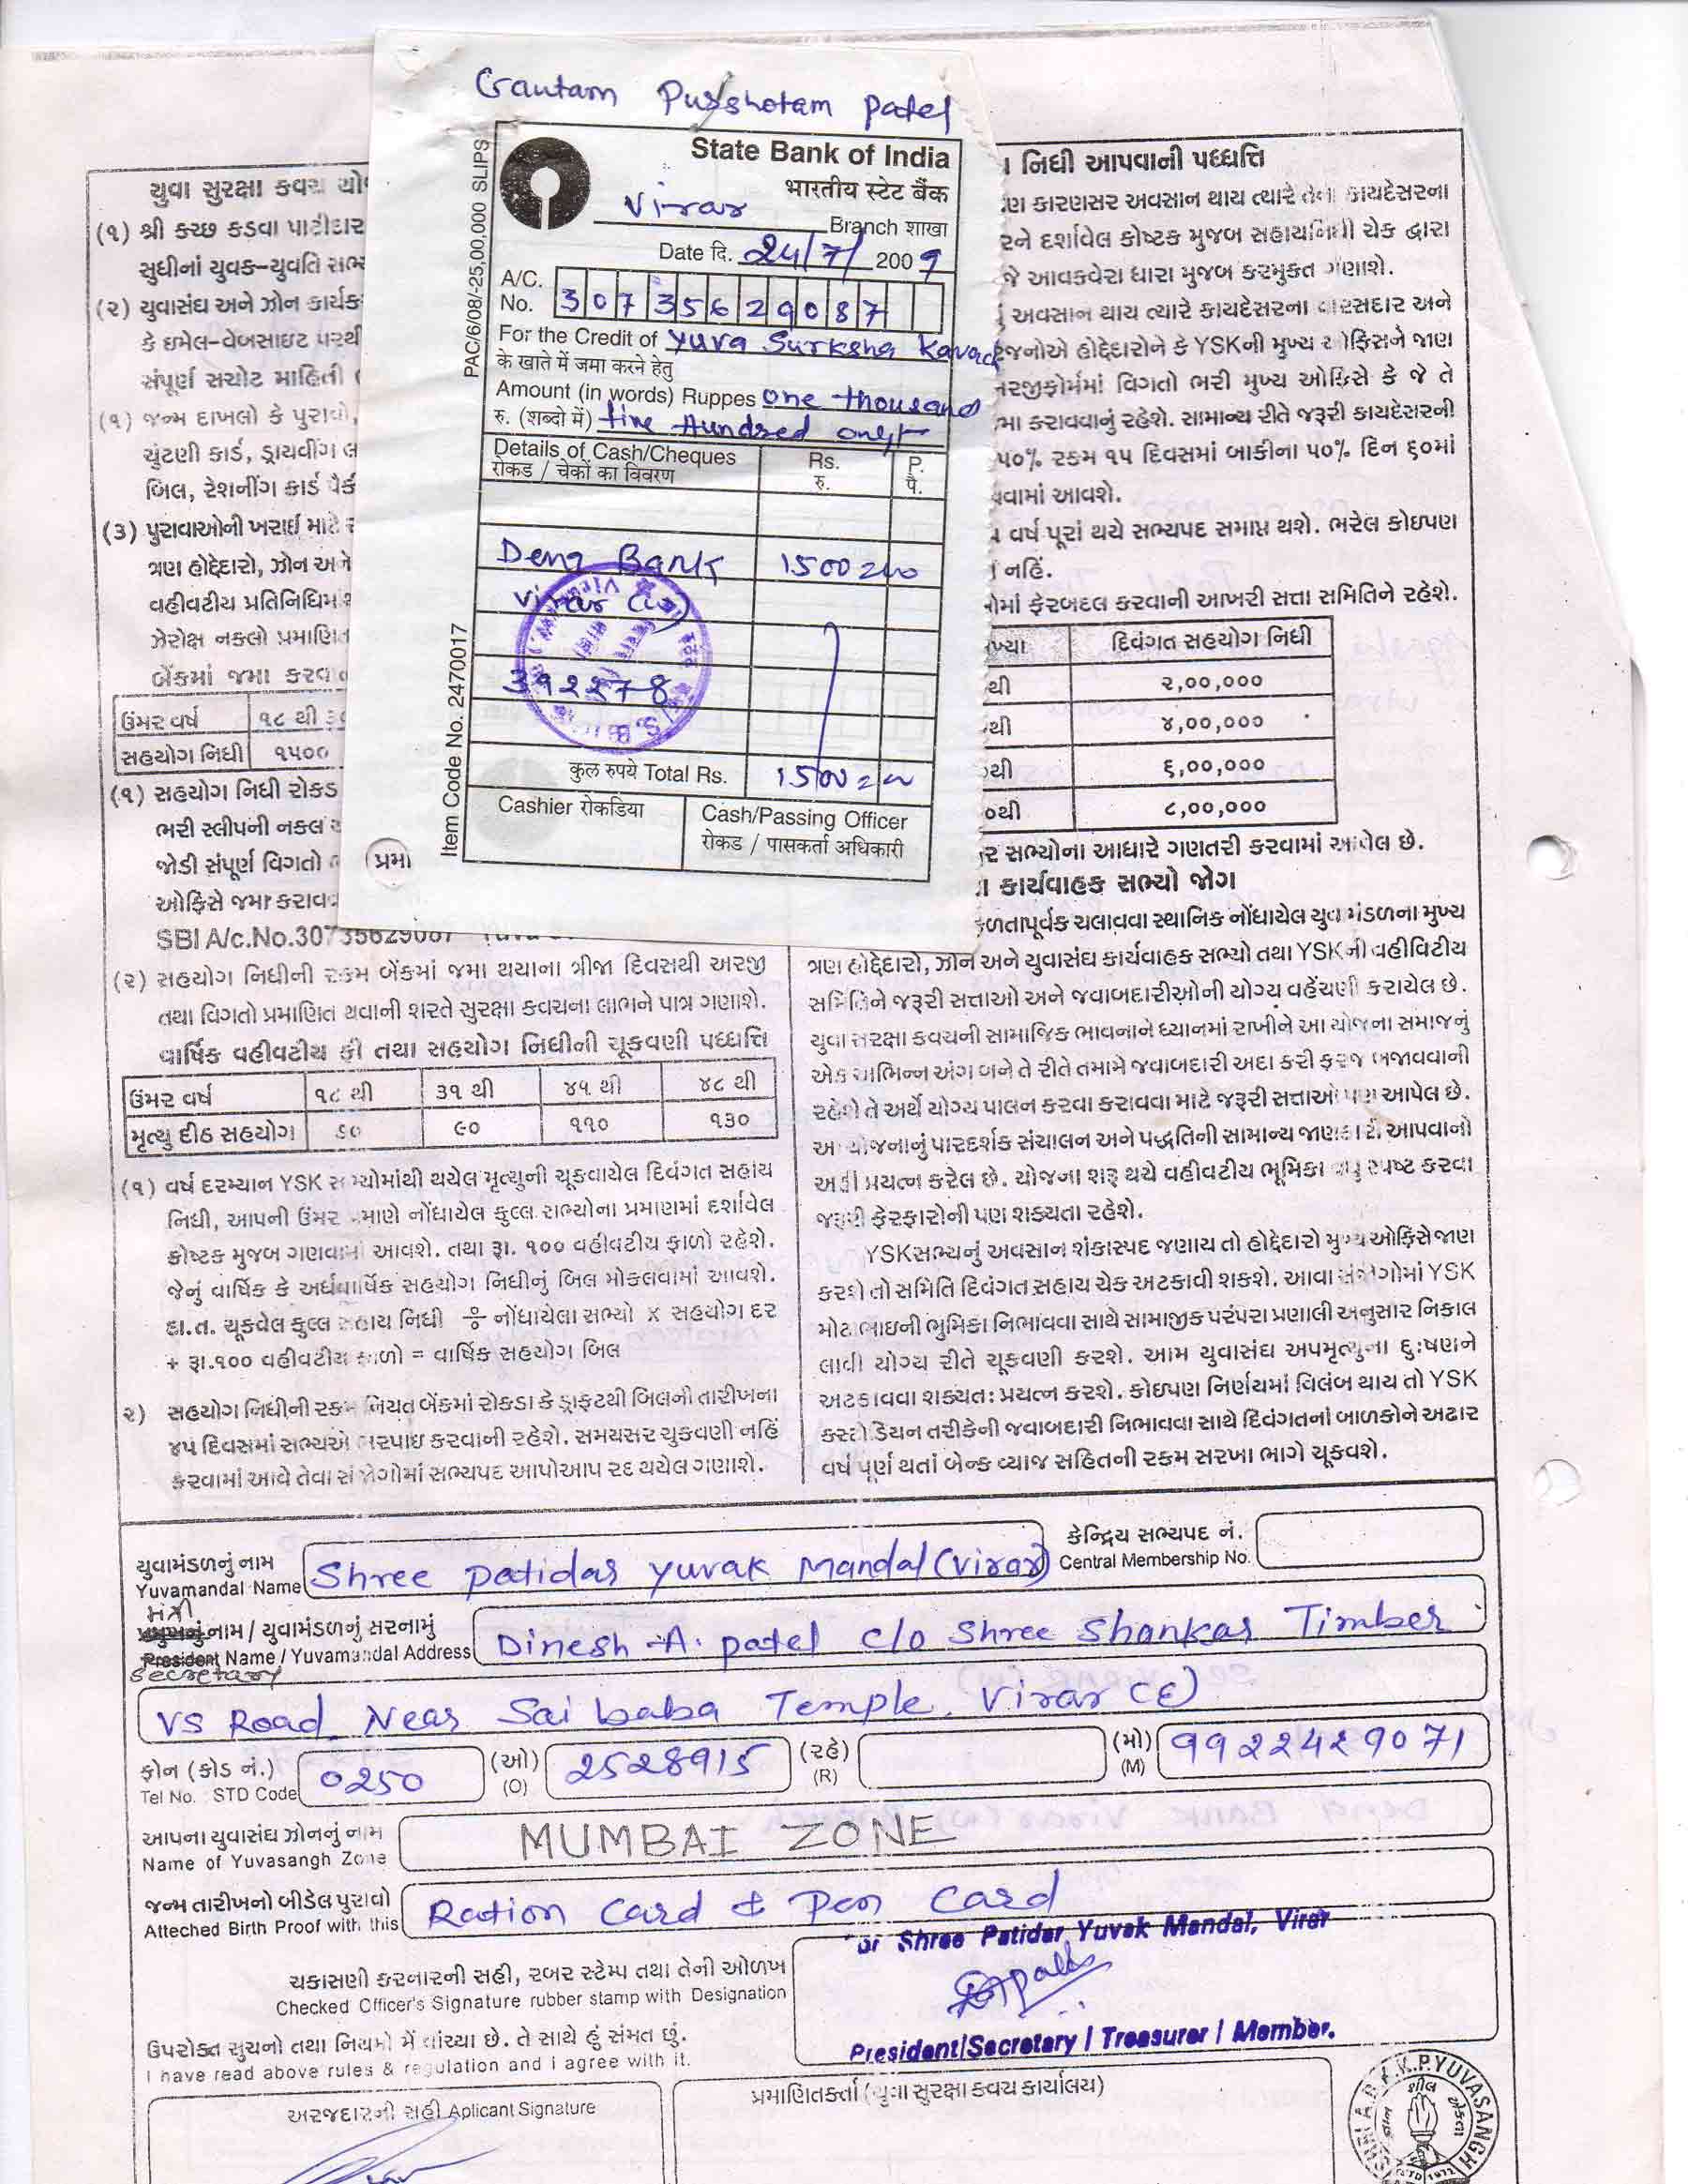 Gautam Purshotam Patel
State Bank of India
भारतीय स्टेट बैंक
Virar
Branch शाखा
Date दि. 24/7/2009
A/C. No. 30735629087
For the Credit of Yuva Surksha Kavach
के खाते में जमा करने हेतु
Amount (in words) Ruppes One thousand
रु. (शब्दो में) five Hundred only
Details of Cash/Cheques Rs. P.
रोकड / चेकों का विवरण रु. पै.
Dena Bank 1500
Virar (W)
392278
कुल रुपये Total Rs. 1500
Cashier रोकडिया
Cash/Passing Officer
रोकड / पासकर्ता अधिकारी
PAC/6/08/-25,00,000 SLIPS
Item Code No. 2470017
પ્રમા
યુવા સુરક્ષા કવચ
(૧) શ્રી કચ્છ કડવા પાટીદાર
સુધીનાં યુવક-યુવતિ
(૨) યુવાસંઘ અને ઝોન
કે ઇમેલ-વેબસાઇટ પરથી
સંપૂર્ણ સચોટ માહિતી
(૧) જન્મ દાખલો કે પુરાવો,
ચુંટણી કાર્ડ, ડ્રાયવીંગ
બિલ, રેશનીંગ કાર્ડ
(૩) પુરાવાઓની ખરાઈ માટે
ત્રણ હોદ્દેદારો, ઝોન અને
વહીવટીય
ઝેરોક્ષ નકલો
બેંકમાં જમા
ઉંમર વર્ષ ૧૮ થી
સહયોગ નિધી ૧૫૦૦
(૧) સહયોગ નિધી રોકડ
ભરી સ્લીપની નકલ
જોડી સંપૂર્ણ વિગતો
ઓફિસે જમા
SBI A/c.No.30735629087
(૨) સહયોગ નિધીની રકમ બેંકમાં જમા થયાના ત્રીજા દિવસથી અરજી
તથા વિગતો પ્રમાણિત થવાની શરતે સુરક્ષા કવચના લાભને પાત્ર ગણાશે.
વાર્ષિક વહીવટીય ફી તથા સહયોગ નિધીની ચૂકવણી પધ્ધત્તિ
ઉંમર વર્ષ ૧૮ થી ૩૧ થી ૪૫ થી ૪૮ થી
મૃત્યુ દીઠ સહયોગ ૬૦ ૯૦ ૧૧૦ ૧૩૦
(૧) વર્ષ દરમ્યાન YSK સભ્યોમાંથી થયેલ મૃત્યુની ચૂકવાયેલ દિવંગત સહાય
નિધી, આપની ઉંમર પ્રમાણે નોંધાયેલ કુલ્લ સભ્યોના પ્રમાણમાં દર્શાવેલ
કોષ્ટક મુજબ ગણવામાં આવશે. તથા રૂા. ૧૦૦ વહીવટીય ફાળો રહેશે.
જેનું વાર્ષિક કે અર્ધવાર્ષિક સહયોગ નિધીનું બિલ મોકલવામાં આવશે.
દા.ત. ચૂકવેલ કુલ્લ સહાય નિધી ÷ નોંધાયેલા સભ્યો x સહયોગ દર
+ રૂા.૧૦૦ વહીવટીય ફાળો = વાર્ષિક સહયોગ બિલ
૨) સહયોગ નિધીની રકમ નિયત બેંકમાં રોકડા કે ડ્રાફ્ટથી બિલની તારીખના
૪૫ દિવસમાં સભ્યએ ભરપાઇ કરવાની રહેશે. સમયસર ચુકવણી નહિં
કરવામાં આવે તેવા સંજોગોમાં સભ્યપદ આપોઆપ રદ થયેલ ગણાશે.
નિધી આપવાની પધ્ધત્તિ
કારણસર અવસાન થાય ત્યારે તેના કાયદેસરના
દર્શાવેલ કોષ્ટક મુજબ સહાયનિધી ચેક દ્વારા
જે આવકવેરા ધારા મુજબ કરમુક્ત ગણાશે.
અવસાન થાય ત્યારે કાયદેસરના વારસદાર અને
હોદ્દેદારોને કે YSKની મુખ્ય ઓફિસને જાણ
વિગતો ભરી મુખ્ય ઓફિસે કે જે તે
કરાવવાનું રહેશે. સામાન્ય રીતે જરૂરી કાયદેસરની
૫૦% રકમ ૧૫ દિવસમાં બાકીના ૫૦% દિન ૬૦માં
આવશે.
વર્ષ પૂરાં થયે સભ્યપદ સમાપ્ત થશે. ભરેલ કોઇપણ
નહિં.
ફેરબદલ કરવાની આખરી સત્તા સમિતિને રહેશે.
દિવંગત સહયોગ નિધી
થી ૨,૦૦,૦૦૦
થી ૪,૦૦,૦૦૦
થી ૬,૦૦,૦૦૦
૦થી ૮,૦૦,૦૦૦
સભ્યોના આધારે ગણતરી કરવામાં આવેલ છે.
કાર્યવાહક સભ્યો જોગ
ચલાવવા સ્થાનિક નોંધાયેલ યુવામંડળના મુખ્ય
ત્રણ હોદ્દેદારો, ઝોન અને યુવાસંઘ કાર્યવાહક સભ્યો તથા YSKની વહીવિટીય
સમિતિને જરૂરી સત્તાઓ અને જવાબદારીઓની યોગ્ય વહેંચણી કરાયેલ છે.
યુવા સુરક્ષા કવચની સામાજિક ભાવનાને ધ્યાનમાં રાખીને આ યોજના સમાજનું
એક અભિન્ન અંગ બને તે રીતે તમામે જવાબદારી અદા કરી ફરજ બજાવવાની
રહેશે તે અર્થે યોગ્ય પાલન કરવા કરાવવા માટે જરૂરી સત્તાઓ પણ આપેલ છે.
આ યોજનાનું પારદર્શક સંચાલન અને પદ્ધતિની સામાન્ય જાણકારી આપવાનો
અહીં પ્રયત્ન કરેલ છે. યોજના શરૂ થયે વહીવટીય ભૂમિકા વધુ સ્પષ્ટ કરવા
જરૂરી ફેરફારોની પણ શક્યતા રહેશે.
YSKસભ્યનું અવસાન શંકાસ્પદ જણાય તો હોદ્દેદારો મુખ્ય ઓફિસે જાણ
કરશે તો સમિતિ દિવંગત સહાય ચેક અટકાવી શકશે. આવા સંજોગોમાં YSK
મોટાભાઇની ભુમિકા નિભાવવા સાથે સામાજીક પરંપરા પ્રણાલી અનુસાર નિકાલ
લાવી યોગ્ય રીતે ચૂકવણી કરશે. આમ યુવાસંઘ અપમૃત્યુના દુઃષણને
અટકાવવા શક્યત: પ્રયત્ન કરશે. કોઇપણ નિર્ણયમાં વિલંબ થાય તો YSK
કસ્ટોડિયન તરીકેની જવાબદારી નિભાવવા સાથે દિવંગતનાં બાળકોને અઢાર
વર્ષ પૂર્ણ થતાં બેન્ક વ્યાજ સહિતની રકમ સરખા ભાગે ચૂકવશે.
યુવામંડળનું નામ
Yuvamandal Name Shree Patidar Yuvak Mandal (Virar)
કેન્દ્રિય સભ્યપદ નં.
Central Membership No.
મંત્રી
પ્રમુખનું નામ / યુવામંડળનું સરનામું
President Name / Yuvamandal Address Dinesh A. patel C/o Shree Shankar Timber
Secretary
VS Road. Near Sai baba Temple. Virar (E)
ફોન (કોડ નં.) (ઓ) (રહે) (મો)
Tel No. STD Code 0250 (O) 2528915 (R) (M) 9922429071
આપના યુવાસંઘ ઝોનનું નામ
Name of Yuvasangh Zone MUMBAI ZONE
જન્મ તારીખનો બીડેલ પુરાવો
Atteched Birth Proof with this Ration Card & Pan Card
For Shree Patidar Yuvak Mandal, Virar
ચકાસણી કરનારની સહી, રબર સ્ટેમ્પ તથા તેની ઓળખ
Checked Officer's Signature rubber stamp with Designation
President/Secretary / Treasurer / Member.
ઉપરોક્ત સુચનો તથા નિયમો મેં વાંચ્યા છે. તે સાથે હું સંમત છું.
I have read above rules & regulation and I agree with it.
અરજદારની સહી Aplicant Signature
પ્રમાણિતકર્તા (યુવા સુરક્ષા કવચ કાર્યાલય)
K.P.YUVASANGH
શીલ